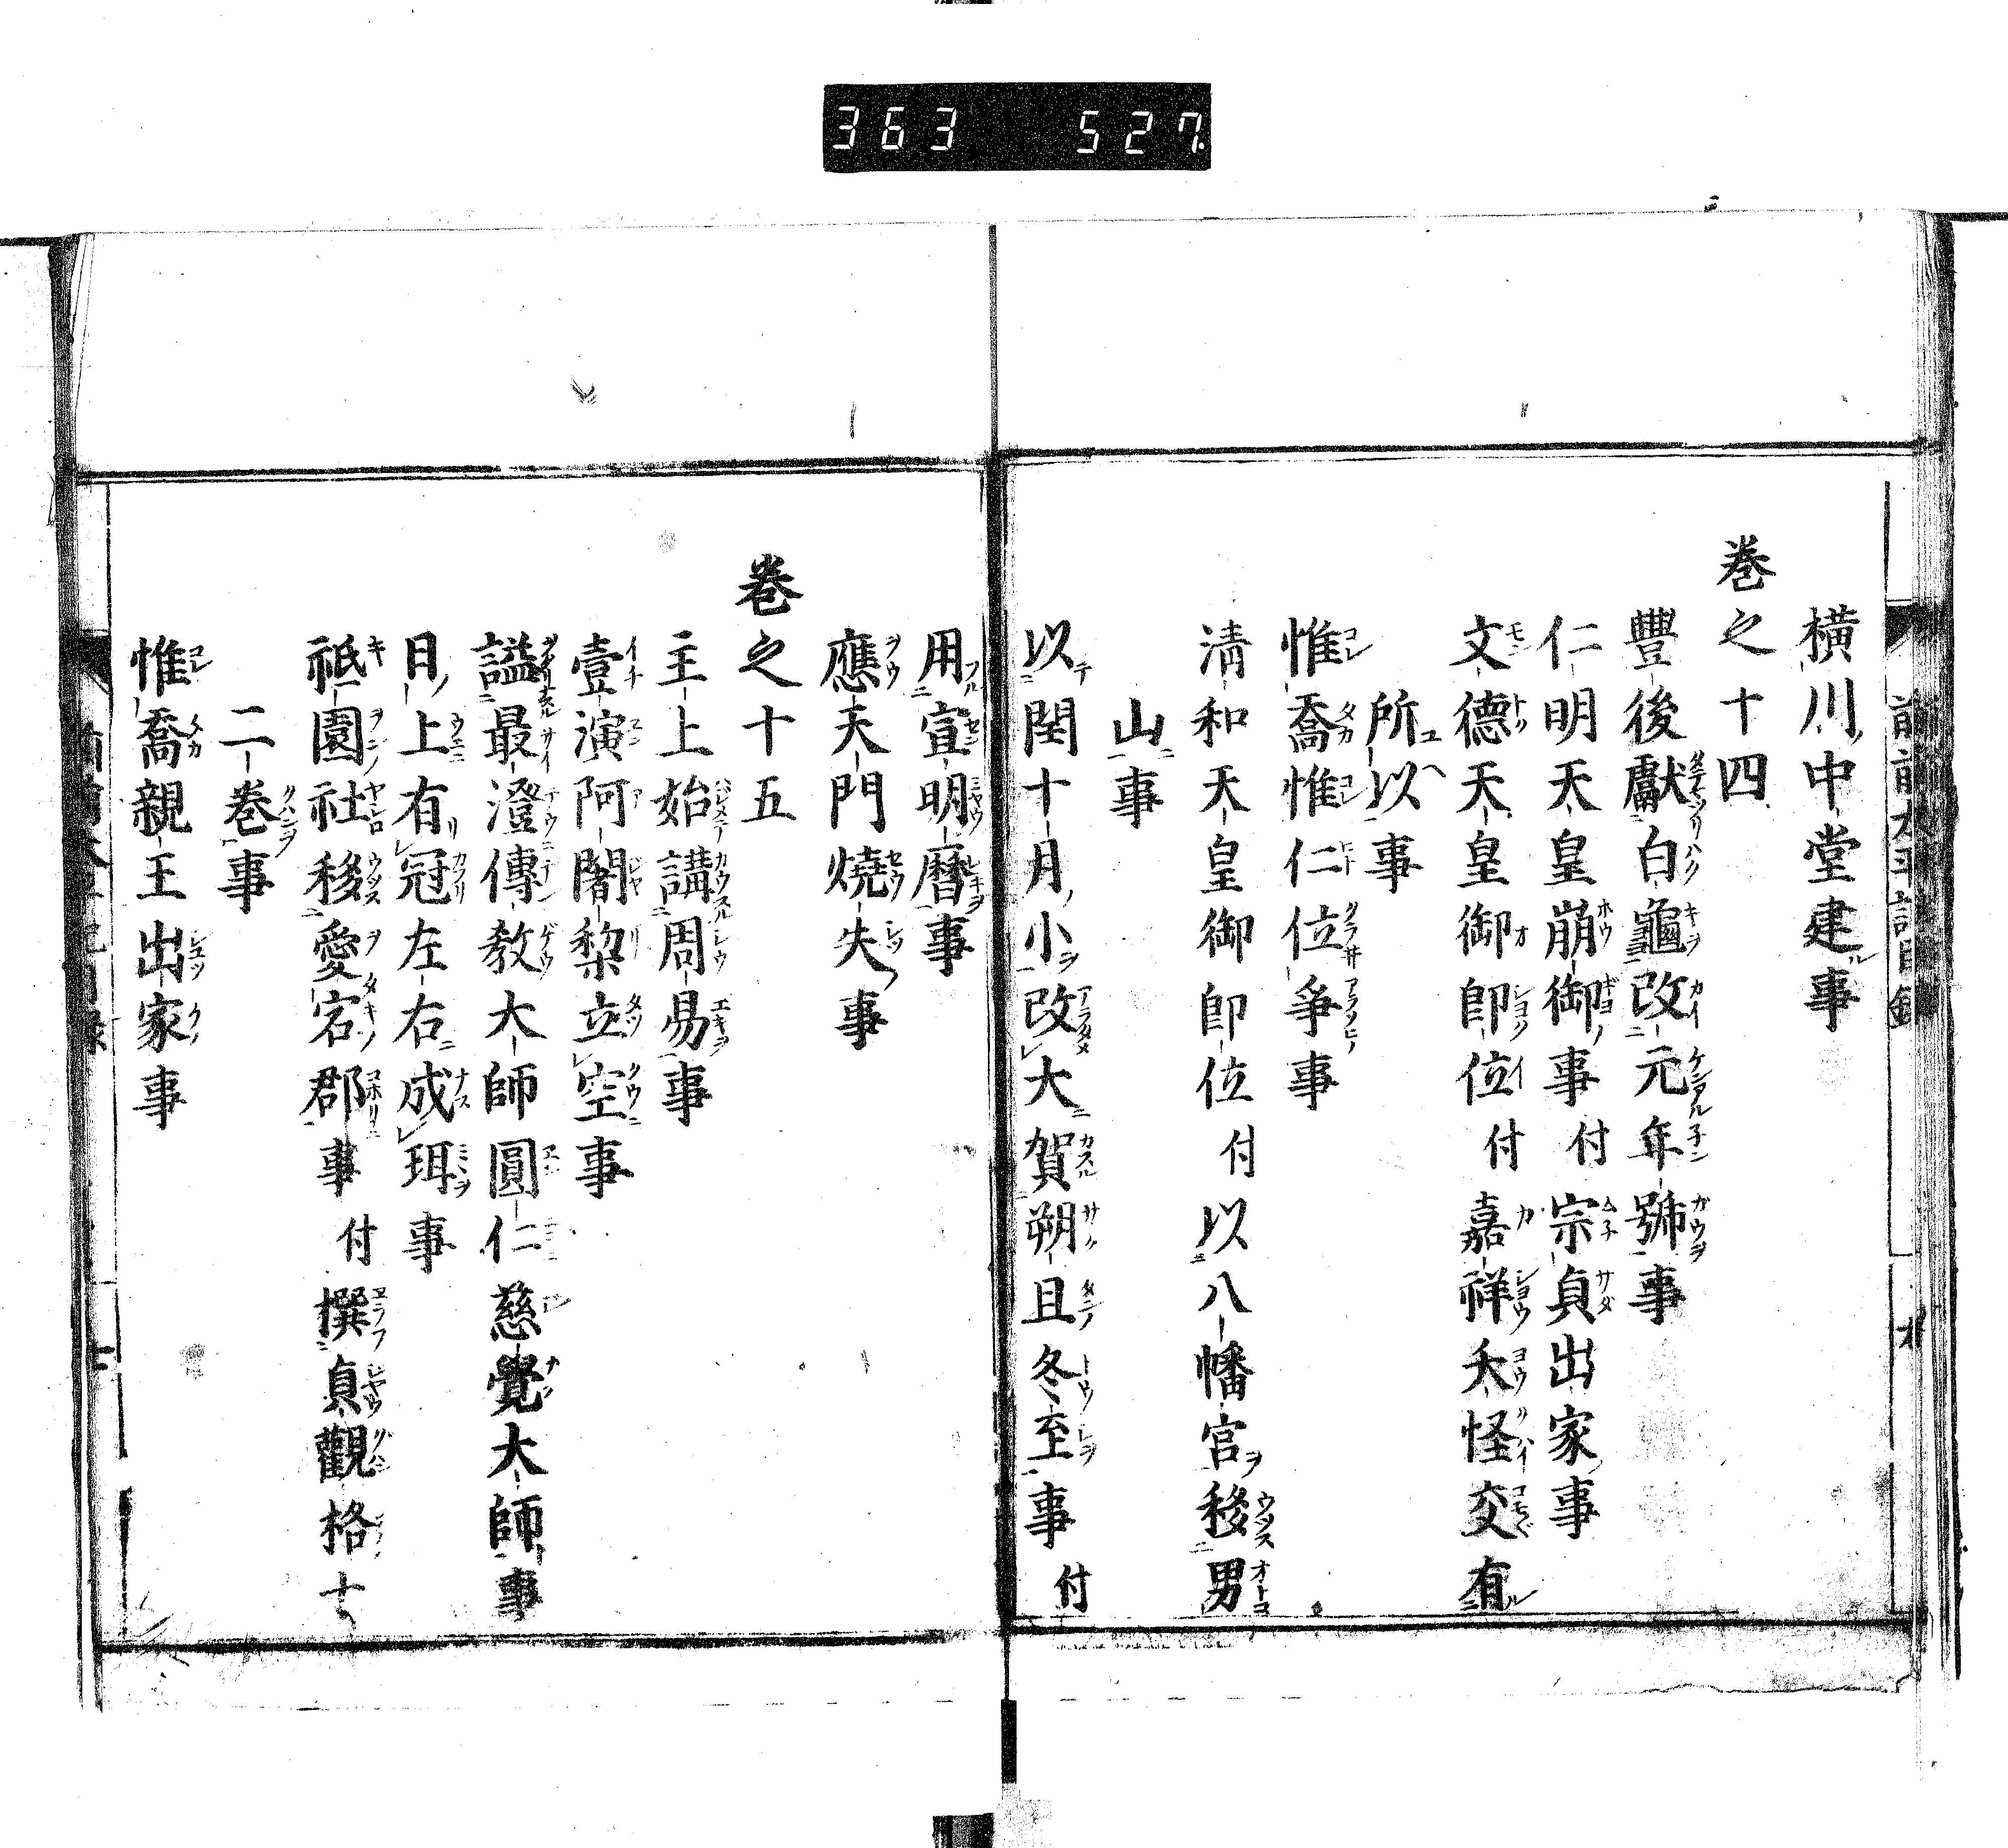 363 527
横川中堂建事
巻之十四
豐後獻白龜改元年號事
仁明天皇崩御事付宗貞出家事
文德天皇御即位付嘉祥夭怪交有
所以事
惟喬惟仁位爭事
淸和天皇御即位付以八幡宮移男
山事
以閏十月小改大賀朔旦冬至事付
用宣明曆事
應天門燒失事
巻之十五
主上始講周易事
壹演阿闍梨立空事
謚最澄傳敎大師圓仁慈覺大師事
日上有冠左右成珥事
祇園社移愛宕郡事付撰貞觀格十
二巻事
惟喬親王出家事